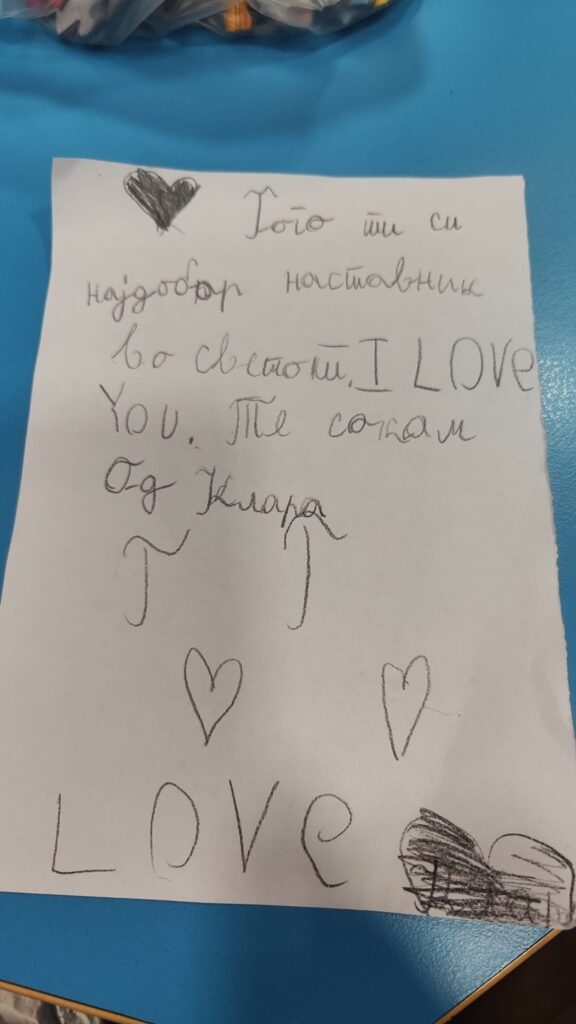 Гого ти си
најдобар наставник
во светот. I LOVe
YOU. Те сакам
Од Клара
Г Г
LOVe